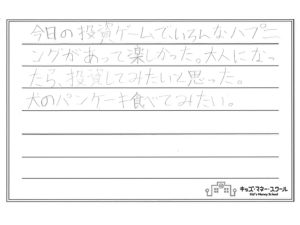 今日の投資ゲームで、いろんなハプニ
ングがあって楽しかった。大人になっ
たら、投資してみたいと思った。
犬のパンケーキ食べてみたい。
キッズ・マネー・スクール
Kid's Money School